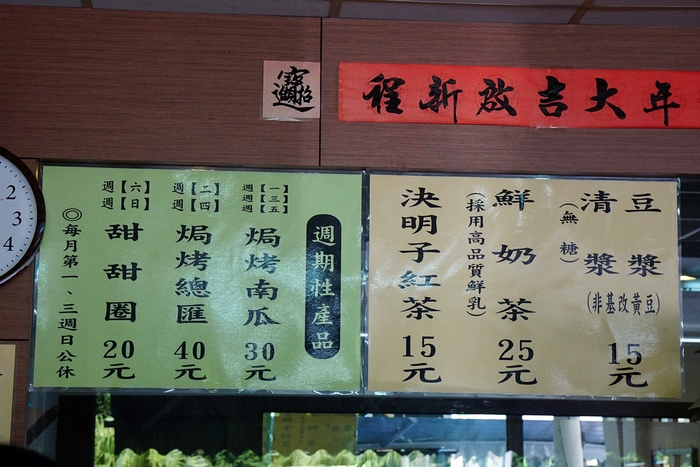 年大吉啟新程
招財進寶
豆漿
清漿
(非基改黃豆)
(無糖)
15元
鮮奶茶
(採用高品質鮮乳)
25元
決明子紅茶
15元
週期性產品
週【一】
週【三】
週【五】
焗烤南瓜
30元
週【二】
週【四】
焗烤總匯
40元
週【六】
週【日】
甜甜圈
20元
◎每月第一、三週日公休
2
3
4